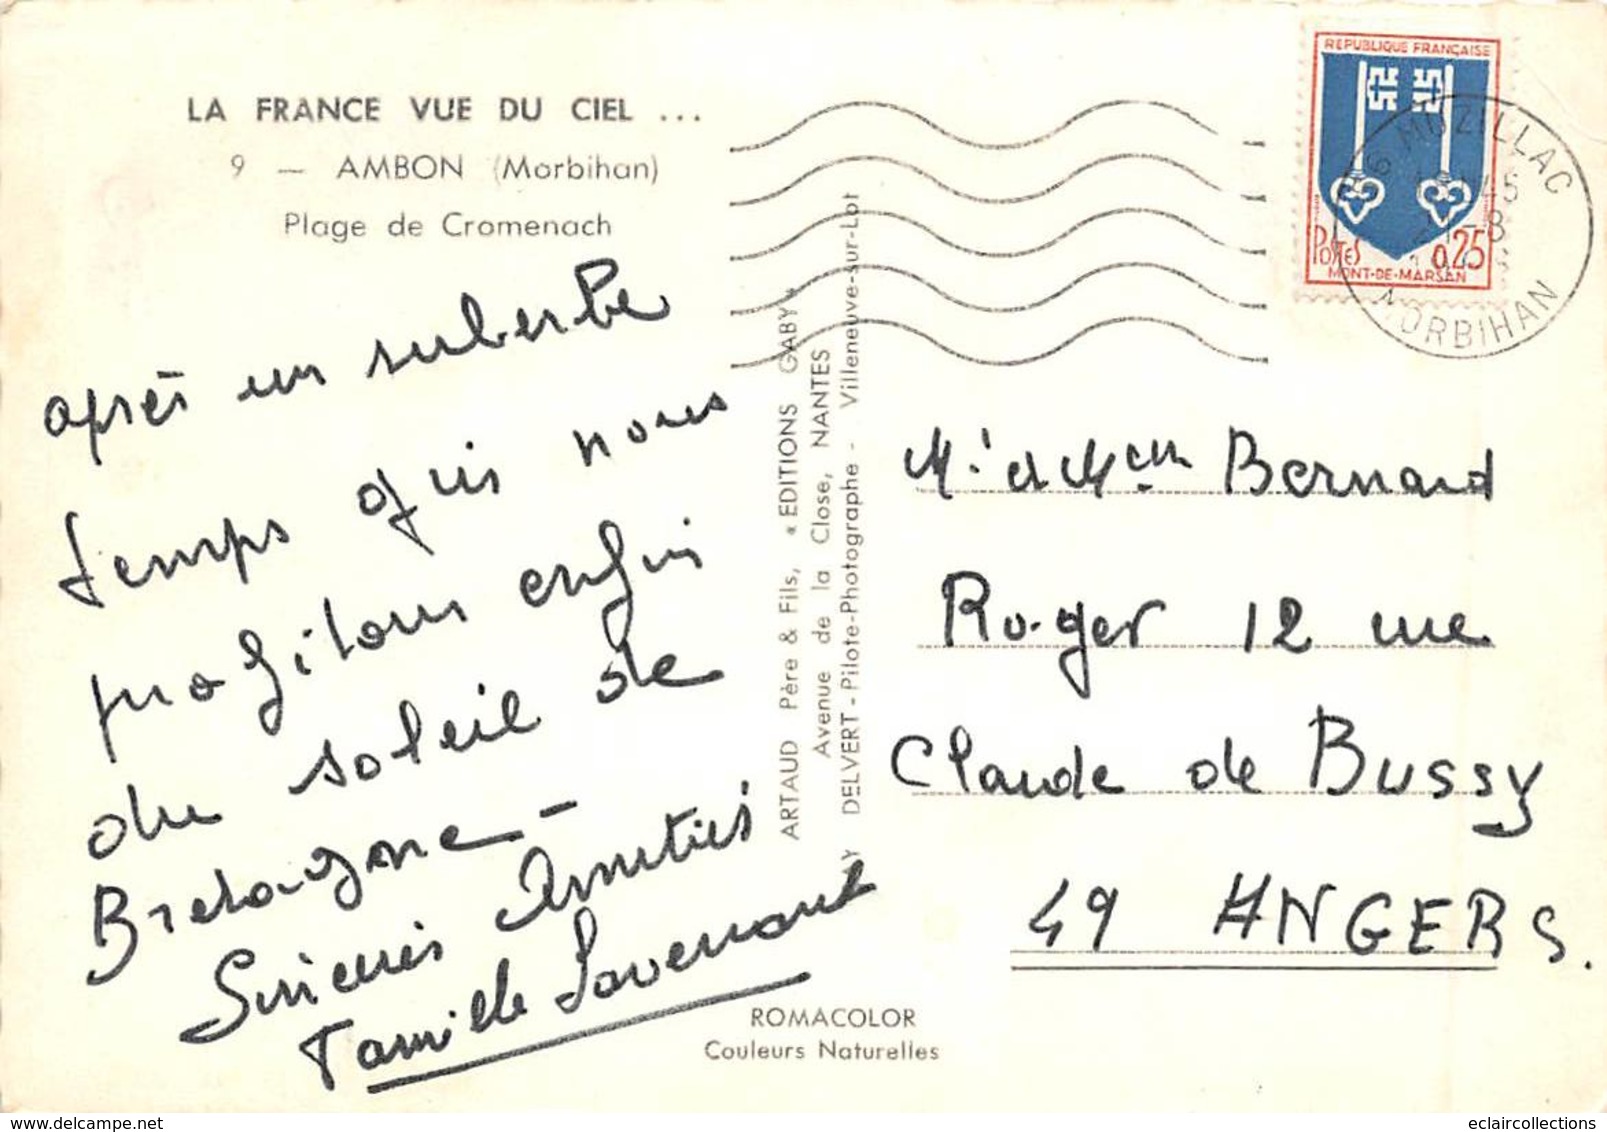 LA FRANCE VUE DU CIEL ...
9 — AMBON (Morbihan)
Plage de Cromenach
après un superbe
temps qui nous
profitons enfin
du soleil de
Bretagne -
Sincères Amitiés
Famille
ARTAUD Père & Fils, « EDITIONS GABY »
Avenue de la Close, NANTES
DELVERT - Pilote-Photographe - Villeneuve-sur-Lot
ROMACOLOR
Couleurs Naturelles
RÉPUBLIQUE FRANÇAISE
POSTES 0,25
MONT-DE-MARSAN
56 MUZILLAC
MORBIHAN
Mr et Mme Bernard
Roger 12 rue
Claude de Bussy
49 ANGERS.
eclaircollections